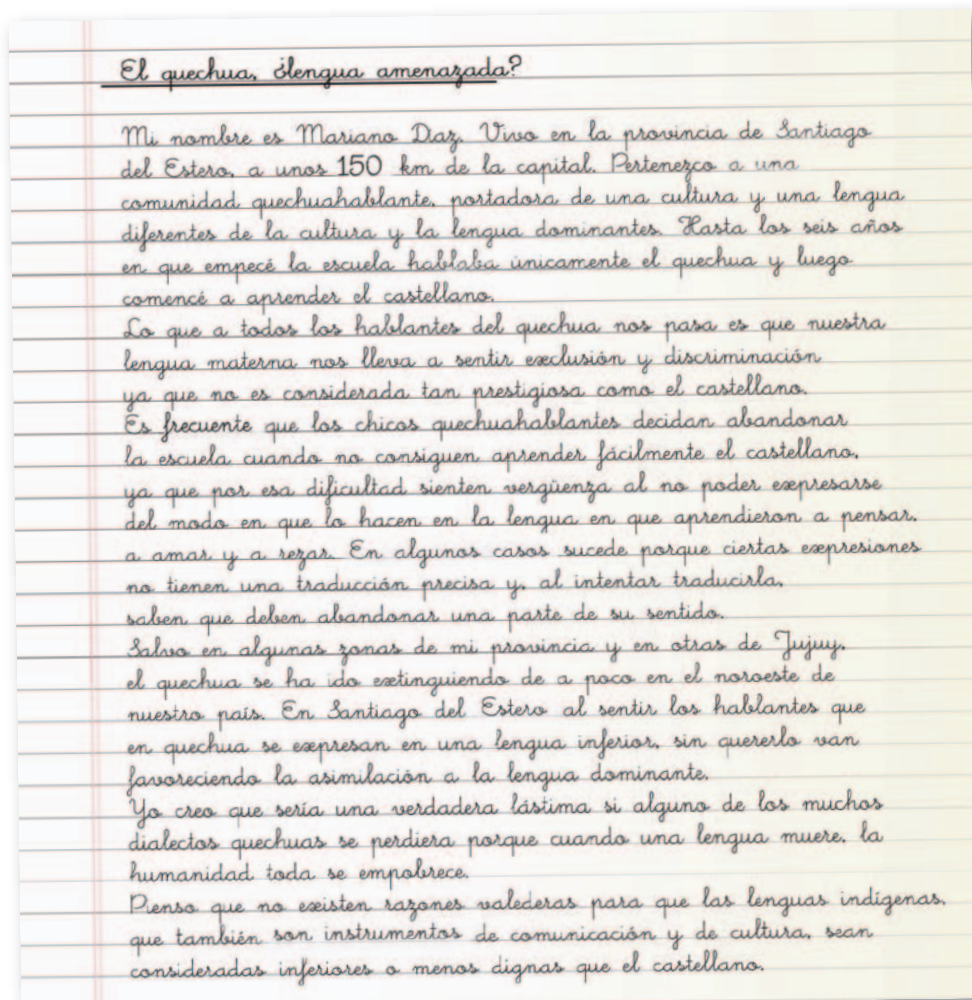 El quechua, ¿lengua amenazada?
Mi nombre es Mariano Díaz. Vivo en la provincia de Santiago
del Estero, a unos 150 km de la capital. Pertenezco a una
comunidad quechuahablante, portadora de una cultura y una lengua
diferentes de la cultura y la lengua dominantes. Hasta los seis años
en que empecé la escuela hablaba únicamente el quechua y luego
comencé a aprender el castellano.
Lo que a todos los hablantes del quechua nos pasa es que nuestra
lengua materna nos lleva a sentir exclusión y discriminación
ya que no es considerada tan prestigiosa como el castellano.
Es frecuente que los chicos quechuahablantes decidan abandonar
la escuela cuando no consiguen aprender fácilmente el castellano,
ya que por esa dificultad sienten vergüenza al no poder expresarse
del modo en que lo hacen en la lengua en que aprendieron a pensar,
a amar y a rezar. En algunos casos sucede porque ciertas expresiones
no tienen una traducción precisa y, al intentar traducirla,
saben que deben abandonar una parte de su sentido.
Salvo en algunas zonas de mi provincia y en otras de Jujuy,
el quechua se ha ido extinguiendo de a poco en el noroeste de
nuestro país. En Santiago del Estero al sentir los hablantes que
en quechua se expresan en una lengua inferior, sin quererlo van
favoreciendo la asimilación a la lengua dominante.
Yo creo que sería una verdadera lástima si alguno de los muchos
dialectos quechuas se perdiera porque cuando una lengua muere, la
humanidad toda se empobrece.
Pienso que no existen razones valederas para que las lenguas indígenas,
que también son instrumentos de comunicación y de cultura, sean
consideradas inferiores o menos dignas que el castellano.